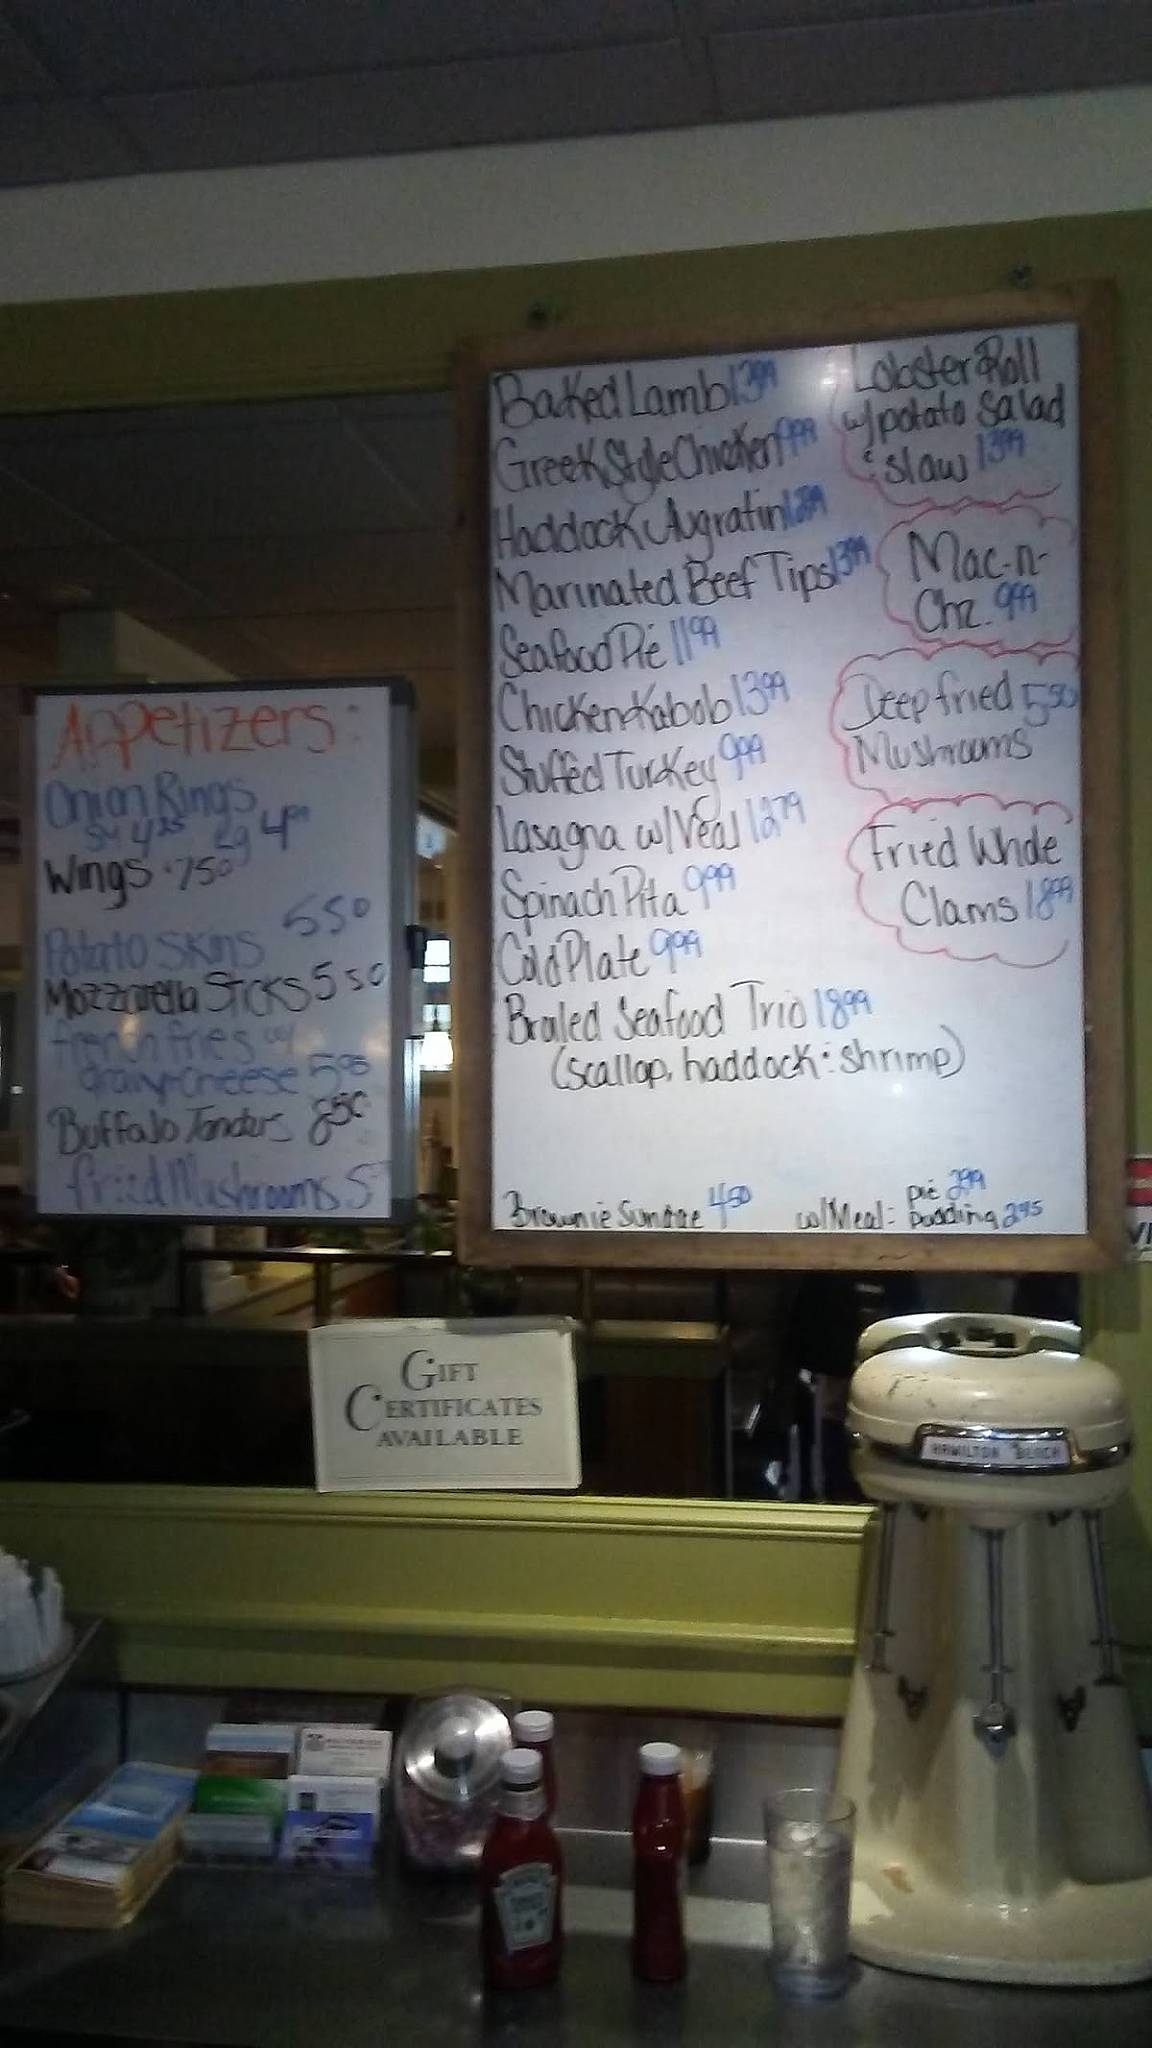 Appetizers:
Onion Rings
Sm 4.25 Lg 4
Wings 7.50
5.50
Potato Skins
Mozzarella Sticks 5 50
french fries w/
Gravy+cheese 5.95
Buffalo Tenders 8.50
fried Mushrooms 5
Baked Lamb 13.99
Greek Style Chicken 9.99
Haddock Augratin
Marinated Beef Tips 13.99
Seafood Pie 11.99
Chicken Kabob 13.99
Stuffed Turkey 9.99
Lasagna w/Veal 12.79
Spinach Pita 9.99
Cold Plate 9.99
Broiled Seafood Trio 18.99
(scallop, haddock & shrimp)
Brownie Sundae 4.50
Lobster Roll
w/potato Salad
& slaw 13.99
Mac-n-
Chz. 9.99
Deep fried 5.50
Mushrooms
Fried Whole
Clams 18.99
pie 2.99
w/Meal: pudding 2.95
GIFT
CERTIFICATES
AVAILABLE
HAMILTON BEACH